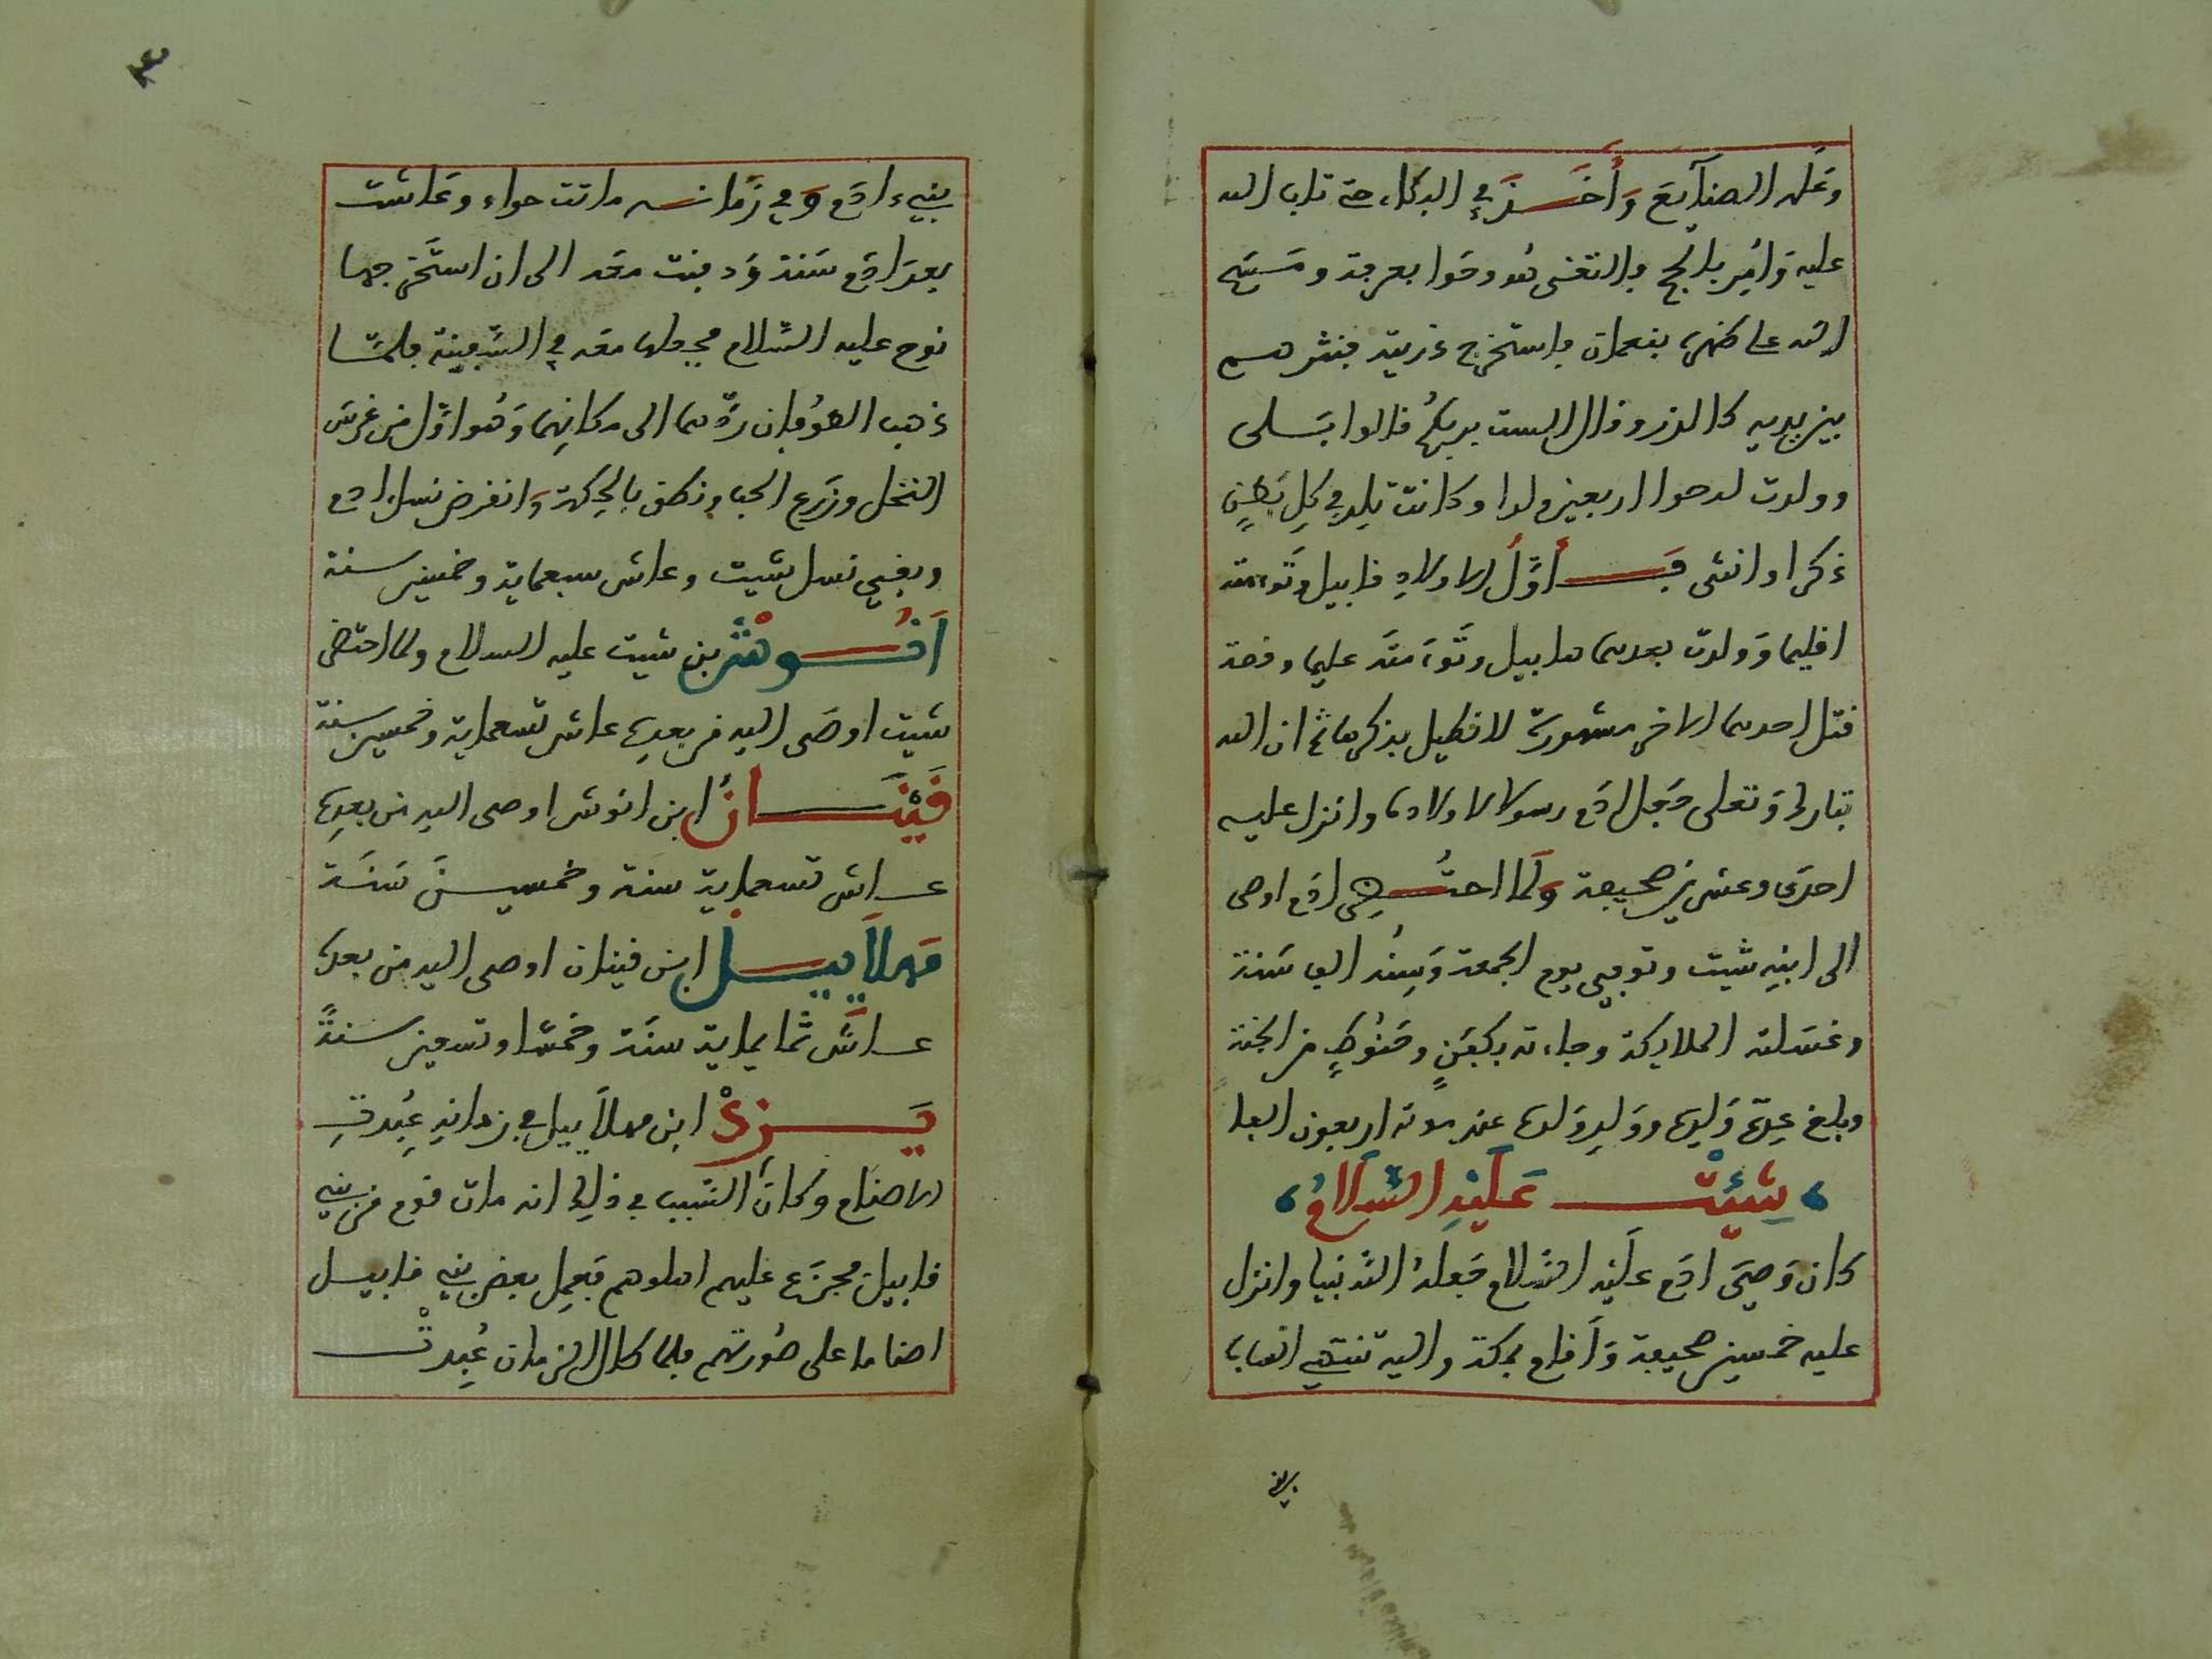 وعلمه الصنايع وأخذ في البكاء حتى تاب الله
عليه وأمر بالحج والتقى هو وحوا بعرفة ومسح
الله على ظهره بنعمان واستخرج ذريته فنثرهم
بين يديه كالذر وقال الست بربكم قالوا بلى
وولدت له حوا اربعين ولدا وكانت تلد في كل بطن
ذكرا وانثى فأول الاولاد قابيل وتوءمته
اقليما وولدت بعدهما هابيل وتوءمته
قتل احدهما الاخر مشهورة لا نطيل بذكرها ثم ان الله
تبارك وتعلى جعل ادم رسولا لاولاده وانزل عليه
احدى وعشرين صحيفة ولما احتضر ادم اوصى
الى ابنه شيت وتوفي يوم الجمعة وسنه الف سنة
وغسلته الملايكة وجاءته بكفن وحنوط من الجنة
وبلغ عدة ولده وولد ولده عند موته اربعون الفا
شيث عليه السلام
كان وصي ادم عليه السلام فعله الدنيا وانزل
عليه خمسين صحيفة وأقام بمكة واليه تنتهي انساب
بني
بني ءادم وفي زمانه ماتت حواء وعاشت
بعد ادم سنة ودفنت معه الى ان استخرجهما
نوح عليه السلام فجعلهما معه في السفينة فلما
ذهب الطوفان ردهما الى مكانهما وهو اول من غرس
النخل وزرع الحب ونطق بالحكمة وانقرض نسل ادم
وبقي نسل شيت وعاش سبعماية وخمسين سنة
أنوش بن شيت عليه السلام ولما احتضر
شيت اوصى اليه من بعده عاش تسعماية وخمسين سنة
قينان ابن انوش اوصى اليه من بعده
عاش تسعماية سنة وخمسين سنة
مهلاييل ابن قينان اوصى اليه من بعده
عاش ثمانماية سنة وخمسا وتسعين سنة
يزد ابن مهلاييل في زمانه عبدت
الاصنام وكان السبب في ذلك انه مات قوم من بني
قابيل فجزع عليهم اهلوهم فعمل بعض بني قابيل
اصناما على صورتهم فلما طال الزمان عبدت